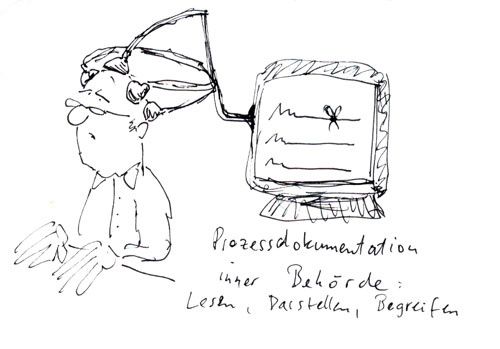 Prozessdokumentation
inner Behörde:
Lesen, Darstellen, Begreifen